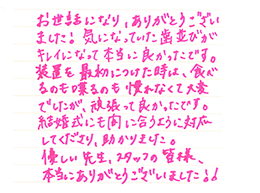 お世話になり、ありがとうござい
ました！気になっていた歯並びが
キレイになって本当に良かったです。
装置を最初につけた時は、食べ
るのも喋るのも慣れなくて大変
でしたが、頑張って良かったです。
結婚式にも間に合うように対応
してくださり、助かりました。
優しい先生、スタッフの皆様、
本当にありがとうございました！！